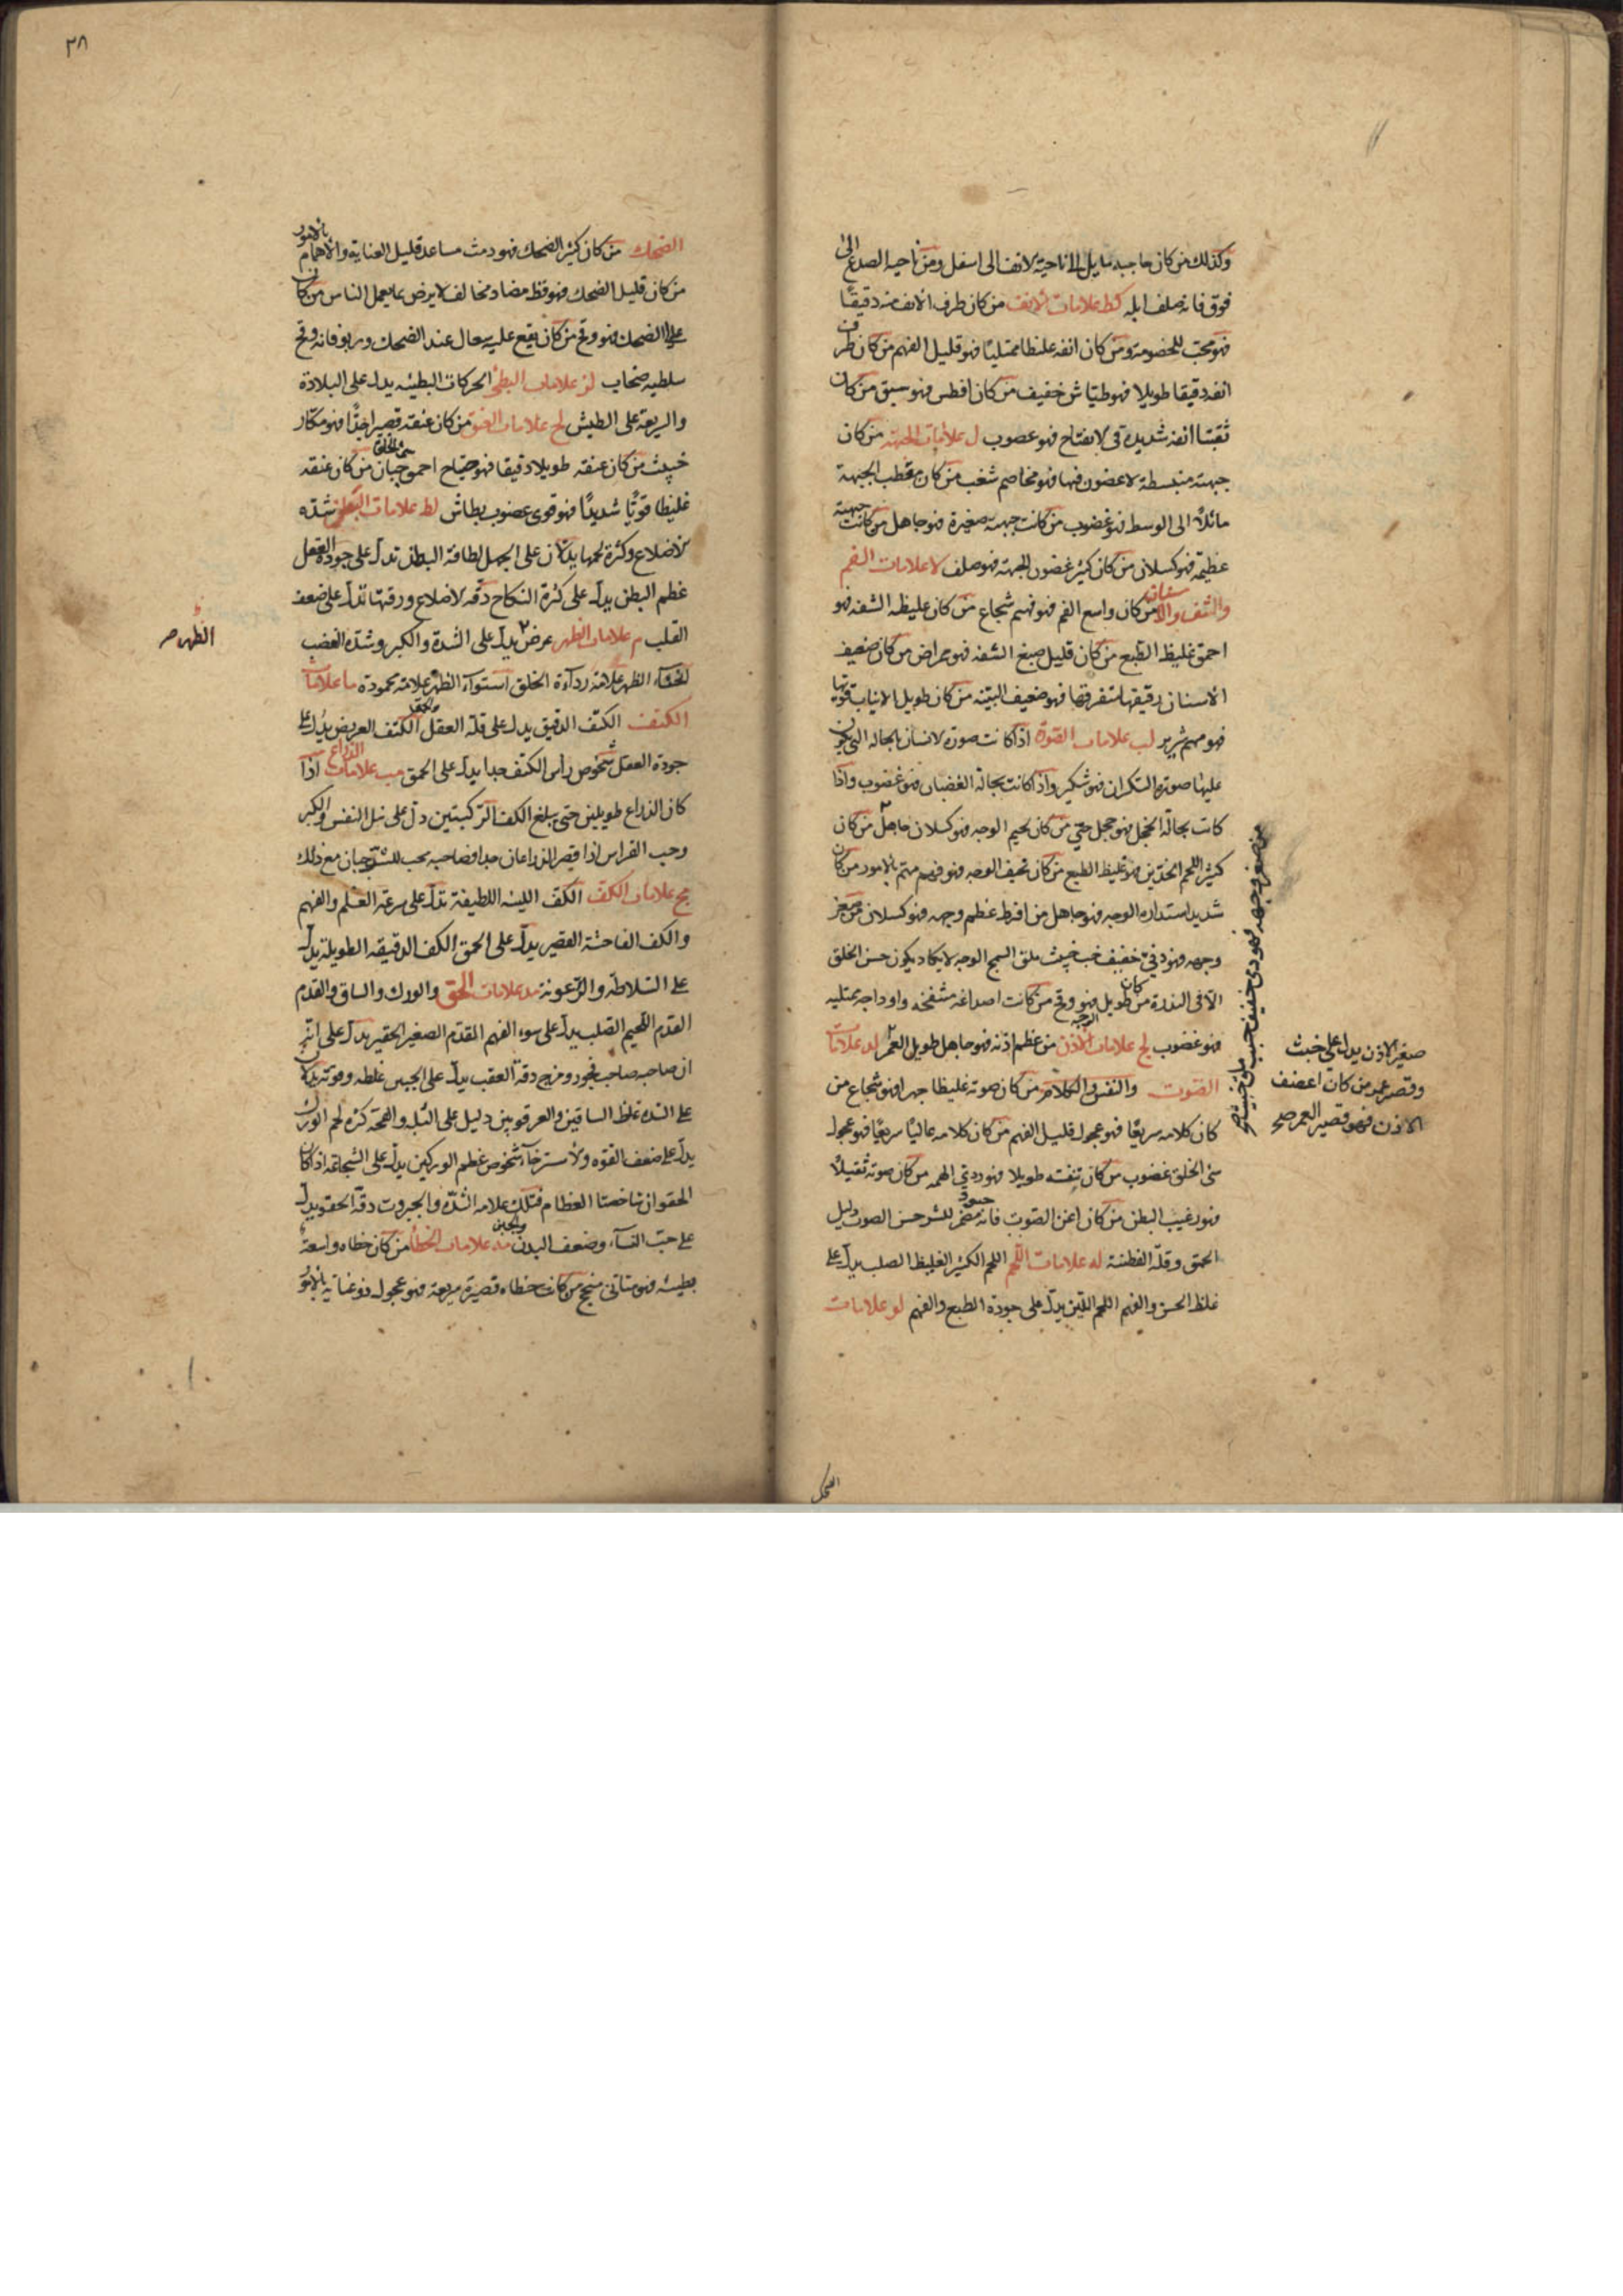 وكذلك من كان حاجبه مايل الى ناحية الانف الى اسفل ومن ناحية الصدغ الى
فوق فانه صلف ابله كط علامات الانف من كان طرف الانف منه دقيقا
فهو محب للخصومة ومن كان انفه غليظا ممتليا فهو قليل الفهم من كان طرف
انفه دقيقا طويلا فهو طياش خفيف من كان افطس فهو سبق من كان
ثقبتا انفه شديدة الانفتاح فهو غضوب ل علامات الجبهة من كان
جبهته منبسطة لا غضون فيها فهو مخاصم شغب من كان مقطب الجبهة
مائلا الى الوسط فهو غضوب من كانت جبهته صغيرة فهو جاهل من كانت جبهته
عظيمة فهو كسلان من كان كثير غضون الجبهة فهو صلف لا علامات الفم
والشفة والاسنان من كان واسع الفم فهو نهم شجاع من كان غليظ الشفة فهو
احمق غليظ الطبع من كان قليل صبغ الشفة فهو ممراض من كان ضعيف
الاسنان رقيقها متفرقها فهو ضعيف البنية من كان طويل الانياب قويها
فهو نهم شرير لب علامات الصورة اذا كانت صورة الانسان بالحالة التي يكون
عليها صورة السكران فهو سكير واذا كانت بحالة الغضبان فهو غضوب واذا
كانت بحالة الخجل فهو خجل حيي من كان لحيم الوجه فهو كسلان جاهل من كان
كثير اللحم الخدين فهو غليظ الطبع من كان نحيف الوجه فهو فهم مهتم بالامور من كان
شديد استدارة الوجه فهو جاهل من افرط عظم وجهه فهو كسلان من صغر
وجهه فهو دني خفيف خب خبيث ملق السمج الوجه لا يكاد يكون حسن الخلق
الا في الندرة من كان طويل الوجه فهو وقح من كانت اصداغه منتفخة واوداجه ممتلية
فهو غضوب لج علامات الاذن من عظم اذنه فهو جاهل طويل العمر لد علامات
الصوت والنفس والكلام من كان صوته غليظا جهيرا فهو شجاع من
كان كلامه سريعا فهو عجول قليل الفهم من كان كلامه عاليا سريعا فهو عجول
سيئ الخلق غضوب من كان تنفسه طويلا فهو ردي الهمة من كان صوته ثقيلا
فهو رغيب البطن من كان اغن الصوت فانه حسود مضمر للشر حسن الصوت دليل
الحمق وقلة الفطنة له علامات اللحم اللحم الكثير الغليظ الصلب يدل على
غلظ الحس والفهم اللحم اللين يدل على جودة الطبع والفهم لو علامات
من صغر وجهه فهو دني خفيف خبيث ملق
صغير الاذن يدل على خبث
وقصر عمر من كان اغضف
الاذن فهو قصير العمر صح
الضحك
٣٨
الضحك من كان كثير الضحك فهو دمث مساعد قليل العناية والاهمام بالامور
من كان قليل الضحك فهو فظ مضاد مخالف لا يرض بما يعمل الناس من كان
علي الضحك فهو وقح من كان يقع عليه سعال عند الضحك وربو فانه وقح
سلطيه صخاب لز علامات البطئ الحركات البطيئه يدل على البلادة
والسريعة على الطيش لح علامات العنق من كان عنقه قصيرا جدا فهو مكار
خبيث من كان عنقه طويلا دقيقا فهو صياح احمق جبان من كان عنقه
غليظا قويا شديدا فهو قوى غضوب بطاش لط علامات البطن شدة
الاضلاع وكثرة لحمها يدلان على الجهل لطافة البطن تدل على جودة العقل
عظم البطن يدل على كثرة النكاح دقة الاضلاع ورقتها تدل على ضعف
القلب م علامات الظهر عرض يدل على الشدة والكبر وشدة الغضب
انحناء الظهر علامة رداءة الخلق استواء الظهر علامة محمودة ما علامات
الكتف الكتف الدقيق يدل على قلة العقل الكتف العريض يدل على
جودة العقل شخوص راس الكتف جدا يدل على الحمق مب علامات الذراع اذا
كان الذراع طويلين حتى يبلغ الكف الركبتين دل على نبل النفس والكبر
وحب الفراس اذا قصر الذراعان جدا فصاحبه محب للشر جبان مع ذلك
مج علامات الكف الكف اللينة اللطيفة تدل على سرعة العلم والفهم
والكف الفاحشة القصير يدل على الحمق الكف الدقيقة الطويلة يدل
على السلاطة والرعونة مد علامات الحقو والورك والساق والقدم
القدم اللحيم الصلب يدل على سوء الفهم القدم الصغير الحقير يدل على
ان صاحبه صاحب فجور ومزح دقة العقب يدل على الجبن غلظه وقوته يدلان
على الشدة غلظ الساقين والعرقوبين دليل على البله والقحة كثرة لحم الورك
يدل على ضعف القوة والاسترخاء شخوص عظم الوركين يدل على الشجاعة اذا كان
الحقوان شاخصتا العظام فتلك علامة الشدة والجبروت دقة الحقو يدل
على حب النساء وضعف البدن والجبن مه علامات الخطأ من كان خطاه واسعة
بطيئة فهو متاني منجح من كانت خطاه قصيرة سريعة فهو عجول ذو عناية بالامور
الظهر صح